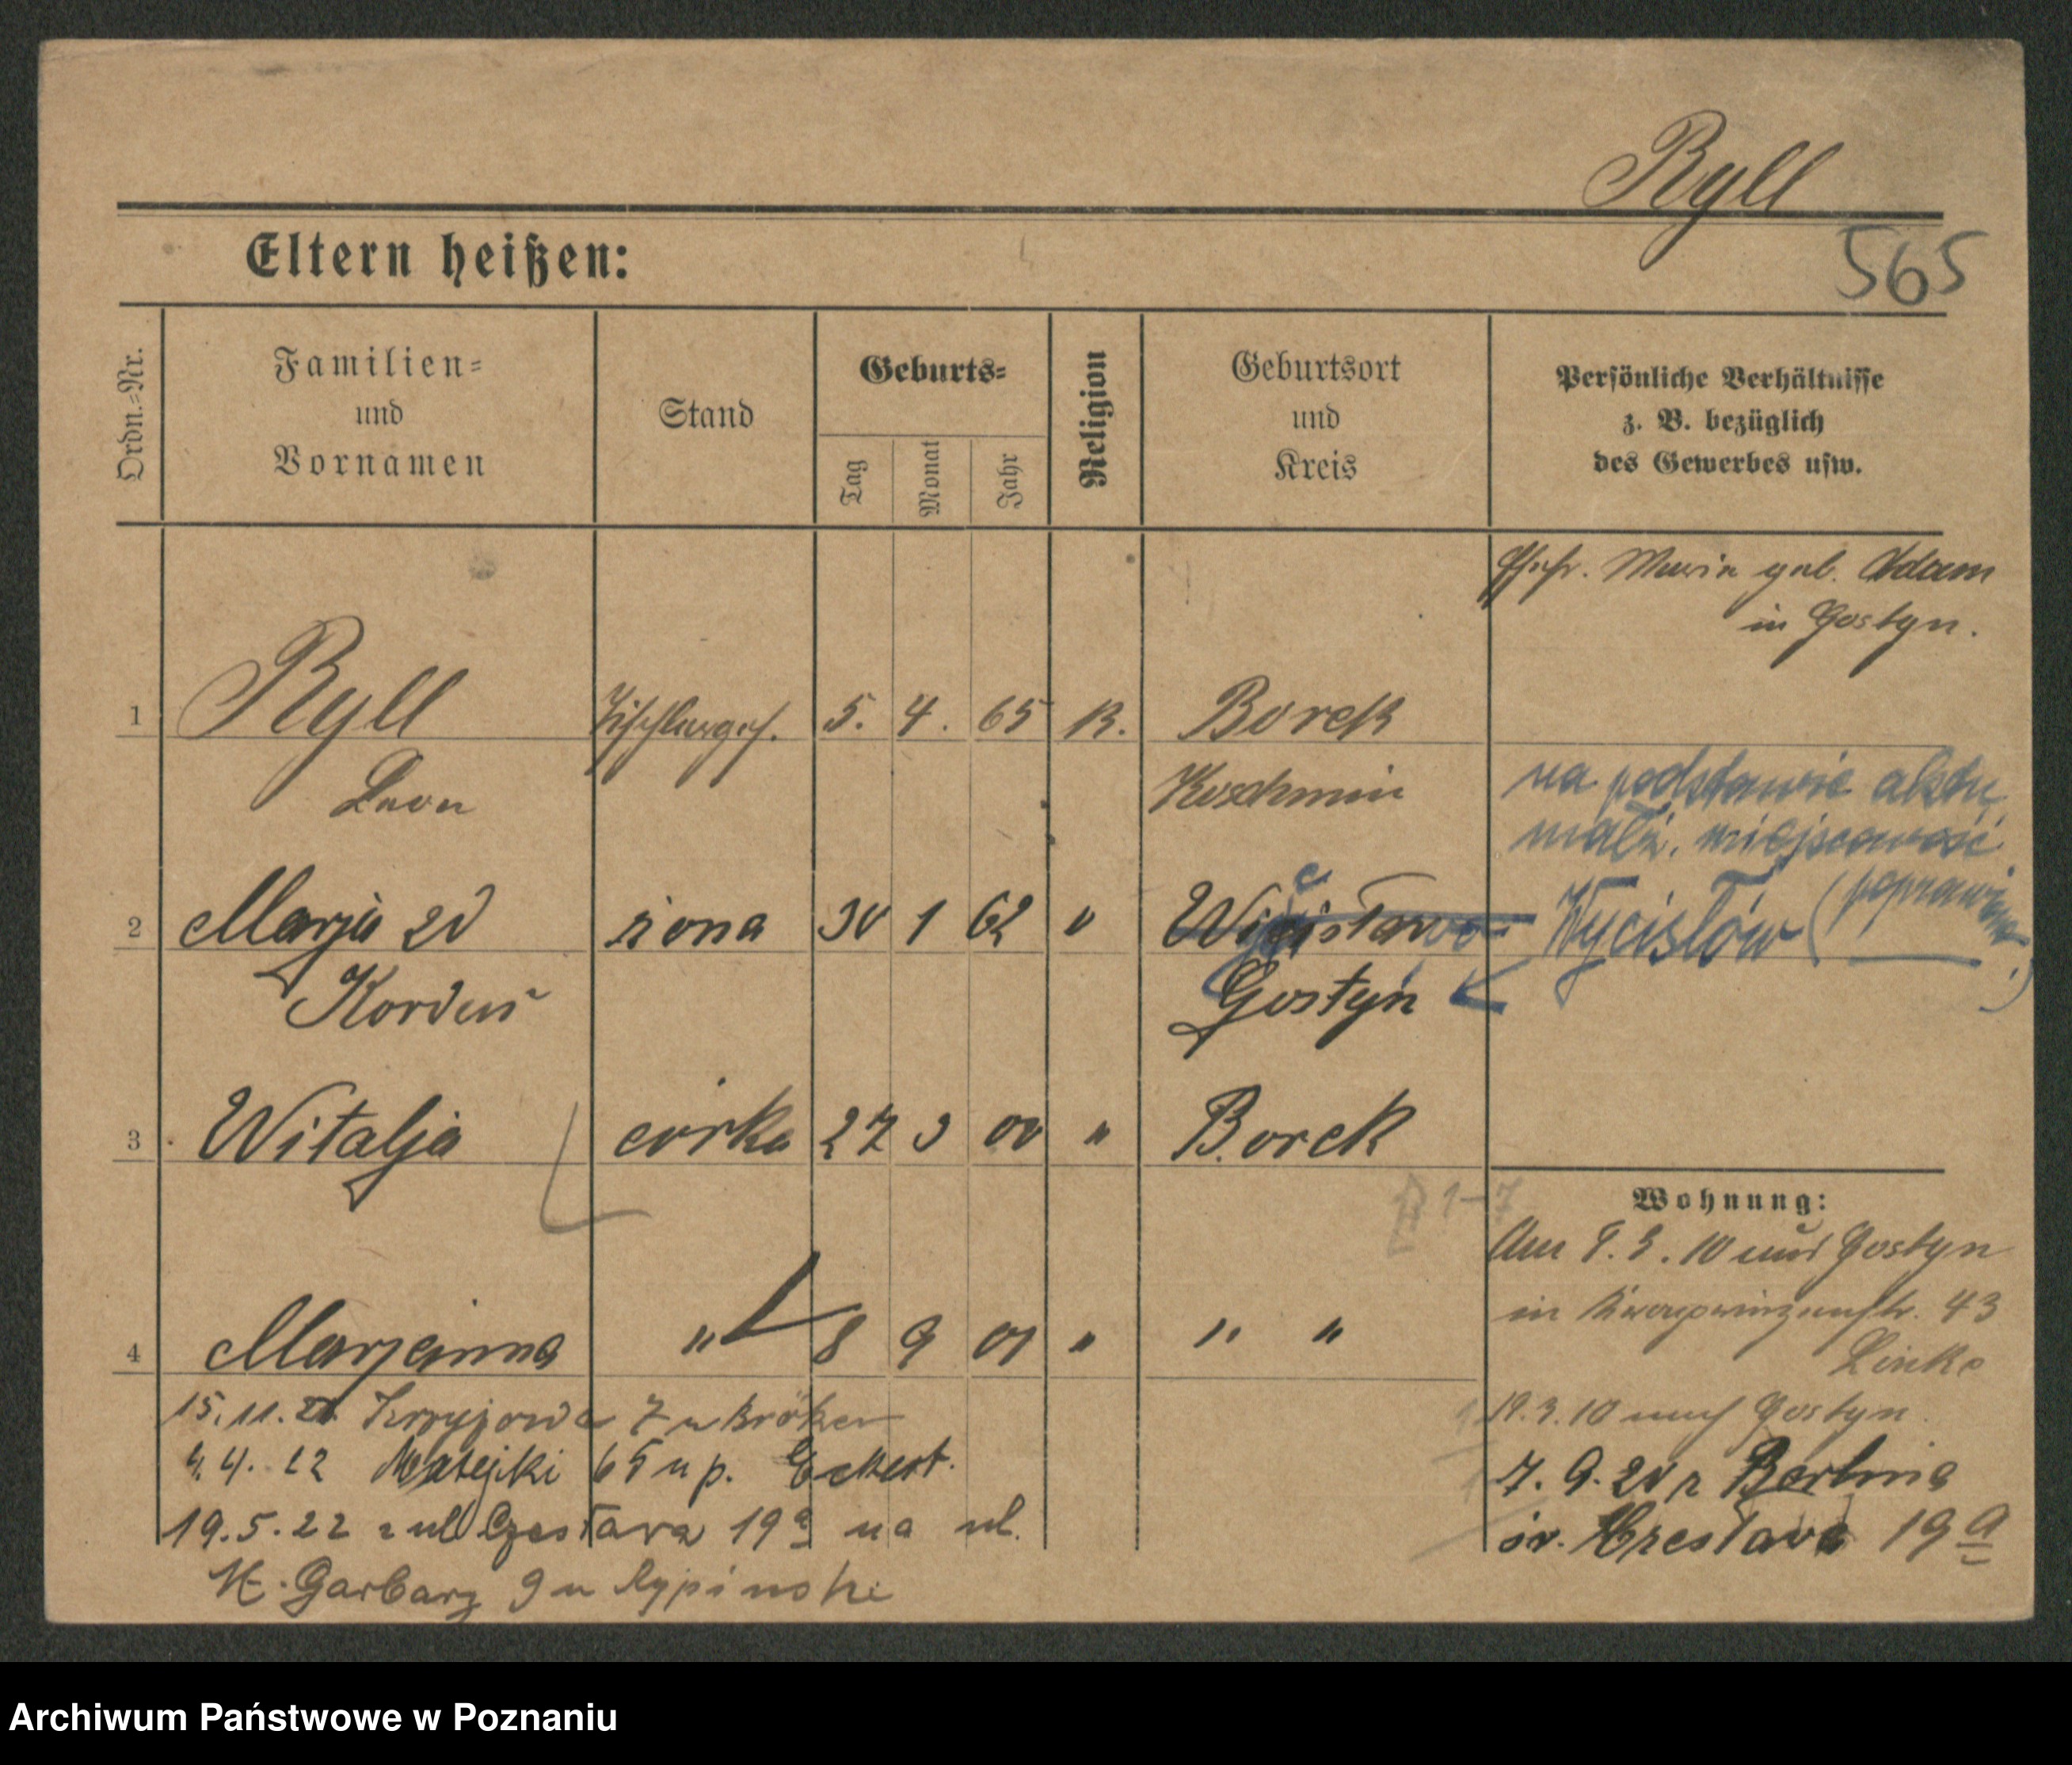 Ryll
565
Eltern heißen:
Ordn.=Nr.
Familien=
und
Vornamen
Stand
Geburts=
Tag
Monat
Jahr
Religion
Geburtsort
und
Kreis
Persönliche Verhältnisse
z. B. bezüglich
des Gewerbes usw.
Ehefr. Maria geb. Adam
in Gostyn.
1 Ryll Tischlerges. 5. 4. 65 K. Borek
Leon Koschmin
na podstawie aktu
małż. miejscowość
2 Marja zd żona 30 1 62 " Wycisłów (poprawiono)
Korduś Gostyń
3 Witalja córka 27 3 00 " Borek
Wohnung:
Am 8. 3. 10 aus Gostyn
in Kronprinzenstr. 43
Linke
4 Marjanna " 8 9 01 " " "
19. 3. 10 nach Gostyn
7. 9. 20 z Berlina
św. Czesława 19a
15. 11. 21. 7 u Bröker
4. 4. 22 Matejki 65 u p. Eckert.
19. 5. 22 z ul Czesława 19a na ul.
W. Garbary 9 u Rypinski
Archiwum Państwowe w Poznaniu